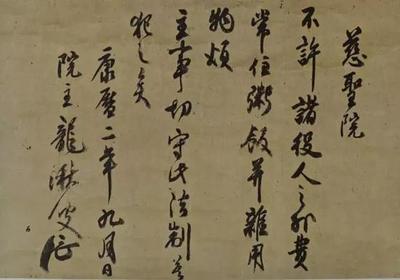 慈聖院
不許諸役人之外費
常住粥飯并雜用
物煩
主事切守此法制莫
犯之矣
康曆二年九月日
院主龍湫